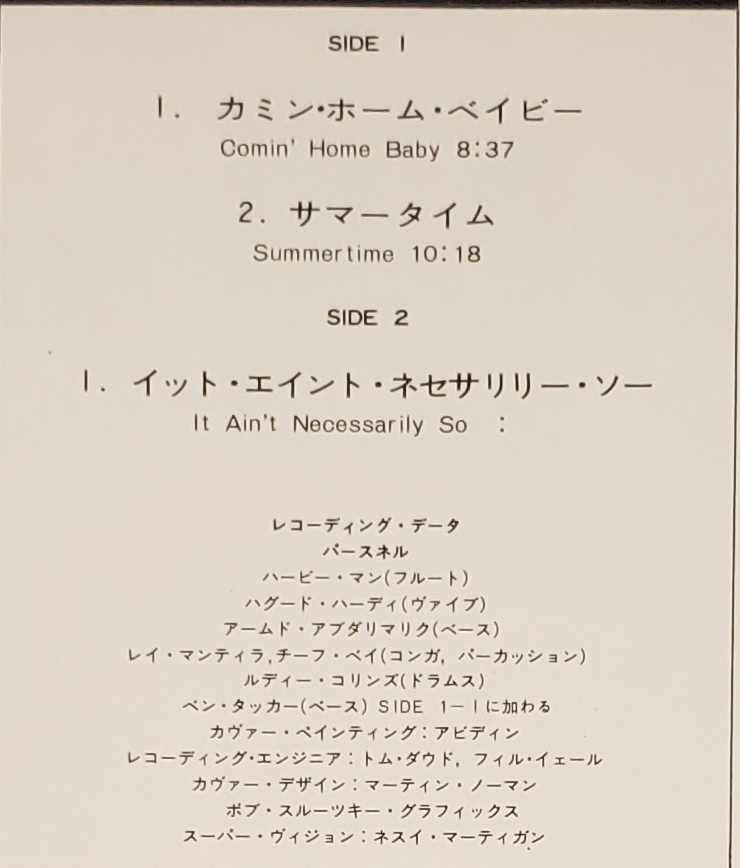 SIDE 1
1. カミン・ホーム・ベイビー
Comin' Home Baby 8:37
2. サマータイム
Summertime 10:18
SIDE 2
1. イット・エイント・ネセサリリー・ソー
It Ain't Necessarily So :
レコーディング・データ
パースネル
ハービー・マン(フルート)
ハグード・ハーディ(ヴァイブ)
アームド・アブダリマリク(ベース)
レイ・マンティラ,チーフ・ベイ(コンガ, パーカッション)
ルディー・コリンズ(ドラムス)
ベン・タッカー(ベース) SIDE 1−1に加わる
カヴァー・ペインティング:アビディン
レコーディング・エンジニア:トム・ダウド, フィル・イェール
カヴァー・デザイン:マーティン・ノーマン
ボブ・スルーツキー・グラフィックス
スーパー・ヴィジョン:ネスイ・マーティガン